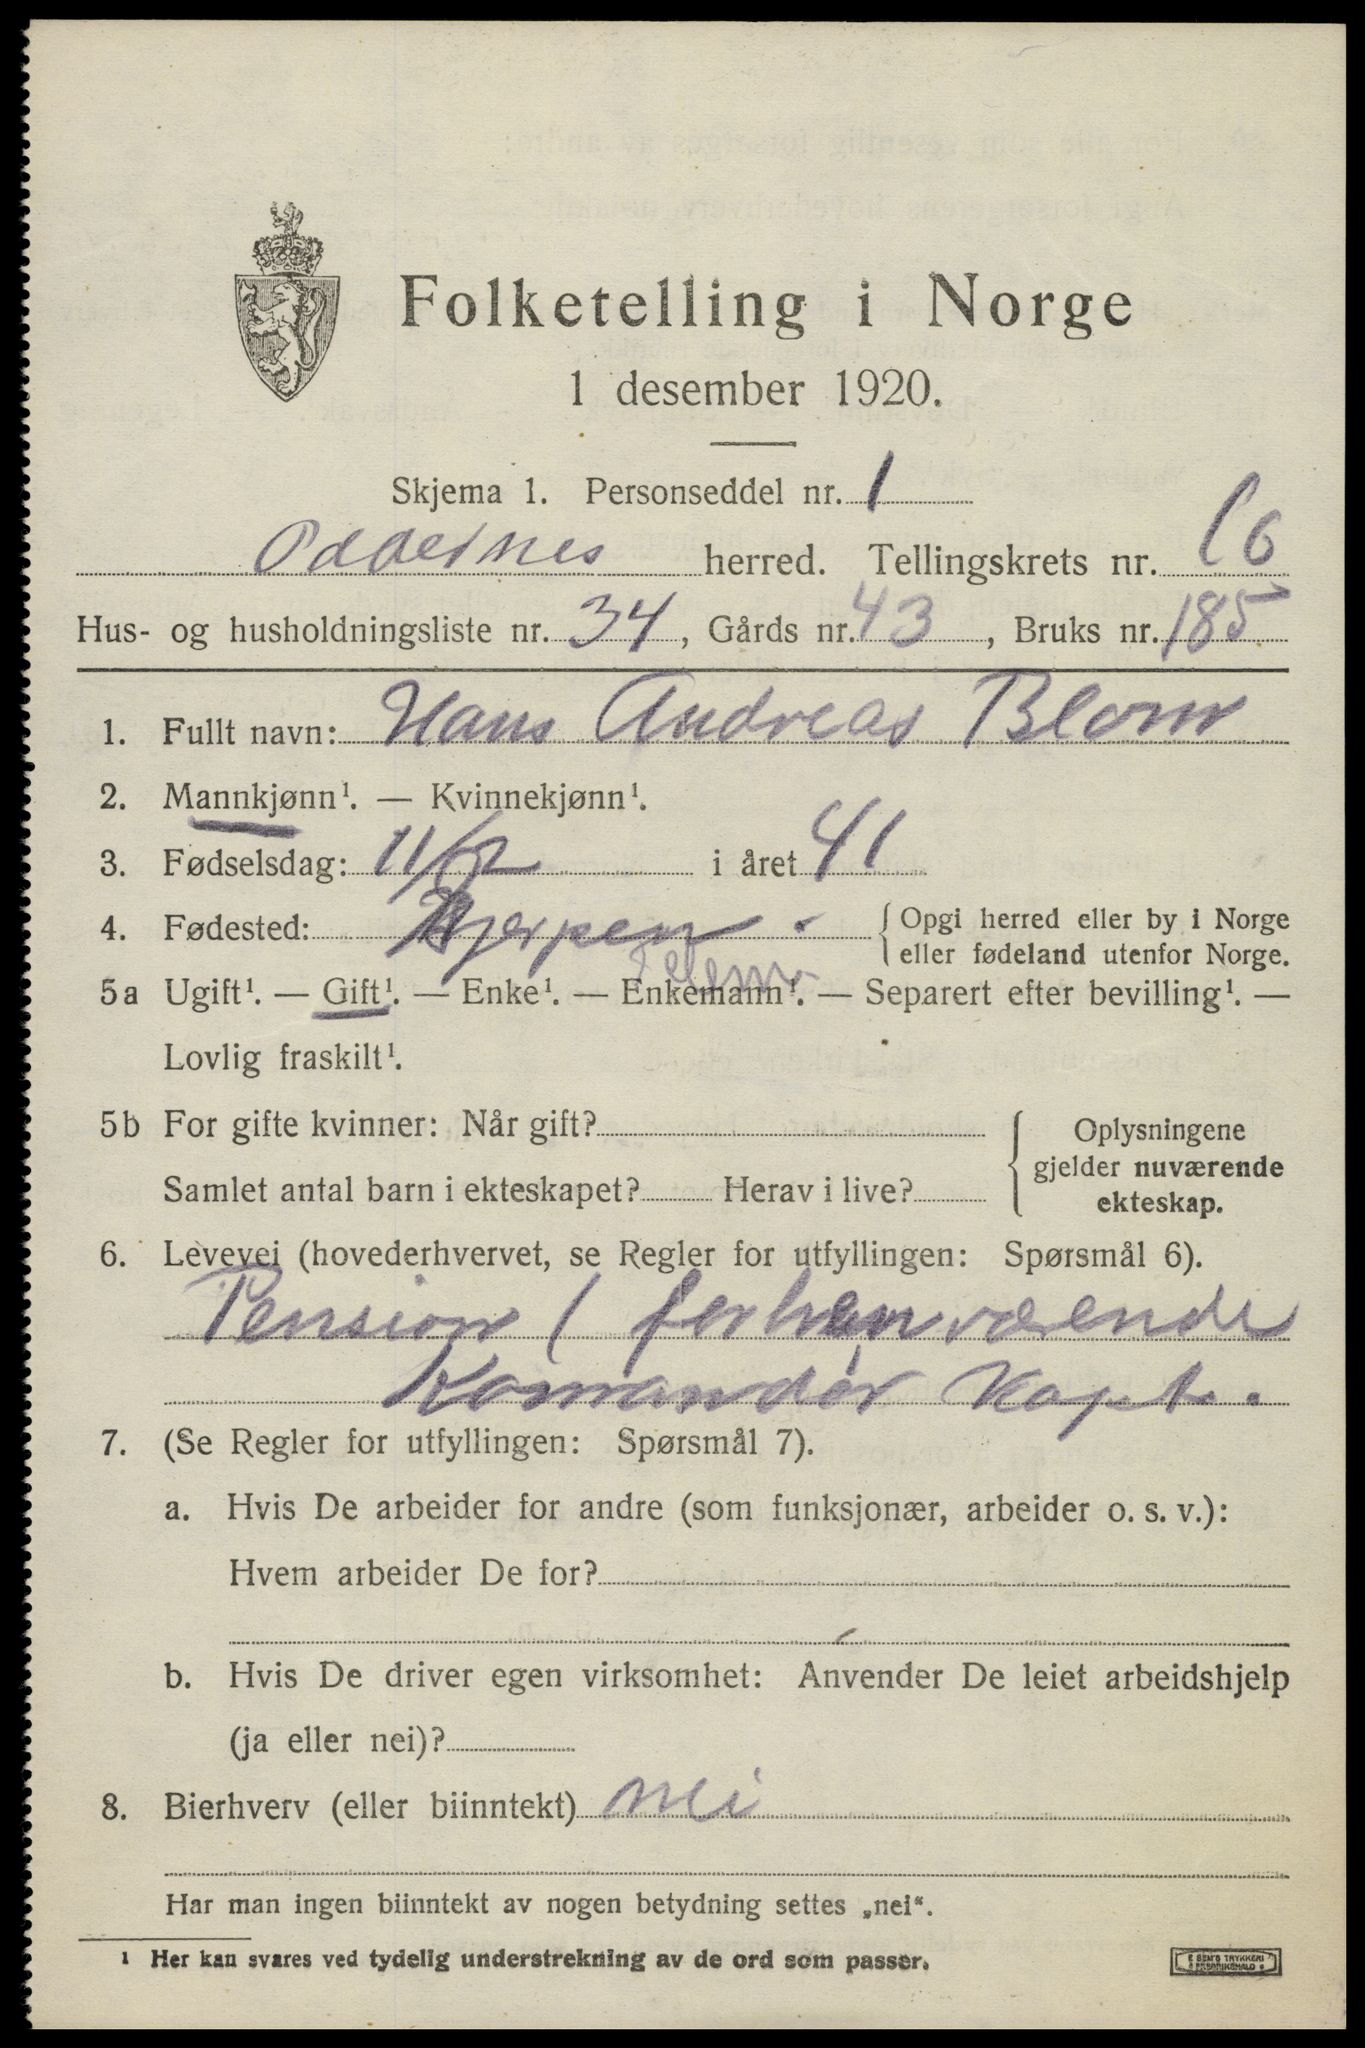 Folketelling i Norge
1 desember 1920.
Skjema 1. Personseddel nr. 1
Oddernes herred. Tellingskrets nr. 16
Hus- og husholdningsliste nr. 34, Gårds nr. 43, Bruks nr. 185
1. Fullt navn: Hans Andreas Blom
2. Mannkjønn¹. — Kvinnekjønn¹.
3. Fødselsdag: 11/12 i året 41
4. Fødested: Gjerpen. { Opgi herred eller by i Norge
eller fødeland utenfor Norge.
Telem.
5a Ugift¹. — Gift¹. — Enke¹. — Enkemann¹. — Separert efter bevilling¹. —
Lovlig fraskilt¹.
5b For gifte kvinner: Når gift? { Oplysningene
gjelder nuværende
ekteskap.
Samlet antal barn i ekteskapet? Herav i live?
6. Levevei (hovederhvervet, se Regler for utfyllingen: Spørsmål 6).
Pension / forhenværende
Komandør Kapt.
7. (Se Regler for utfyllingen: Spørsmål 7).
a. Hvis De arbeider for andre (som funksjonær, arbeider o. s. v.):
Hvem arbeider De for?
b. Hvis De driver egen virksomhet: Anvender De leiet arbeidshjelp
(ja eller nei)?
8. Bierhverv (eller biinntekt) nei
Har man ingen biinntekt av nogen betydning settes „nei“.
¹ Her kan svares ved tydelig understrekning av de ord som passer.
SEM'S TRYKKERI
FREDRIKSHALD